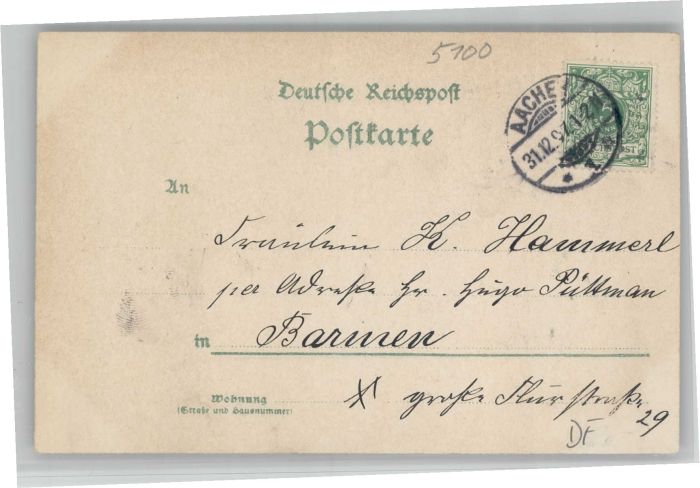 5100
Deutsche Reichspost
Postkarte
AACHEN
31.12.97.
An
Fräulein K. Hammerl
per Adreße Hr. Hugo Püttman
in Barmen
Wohnung
(Straße und Hausnummer)
große Flurstraße
29
DF